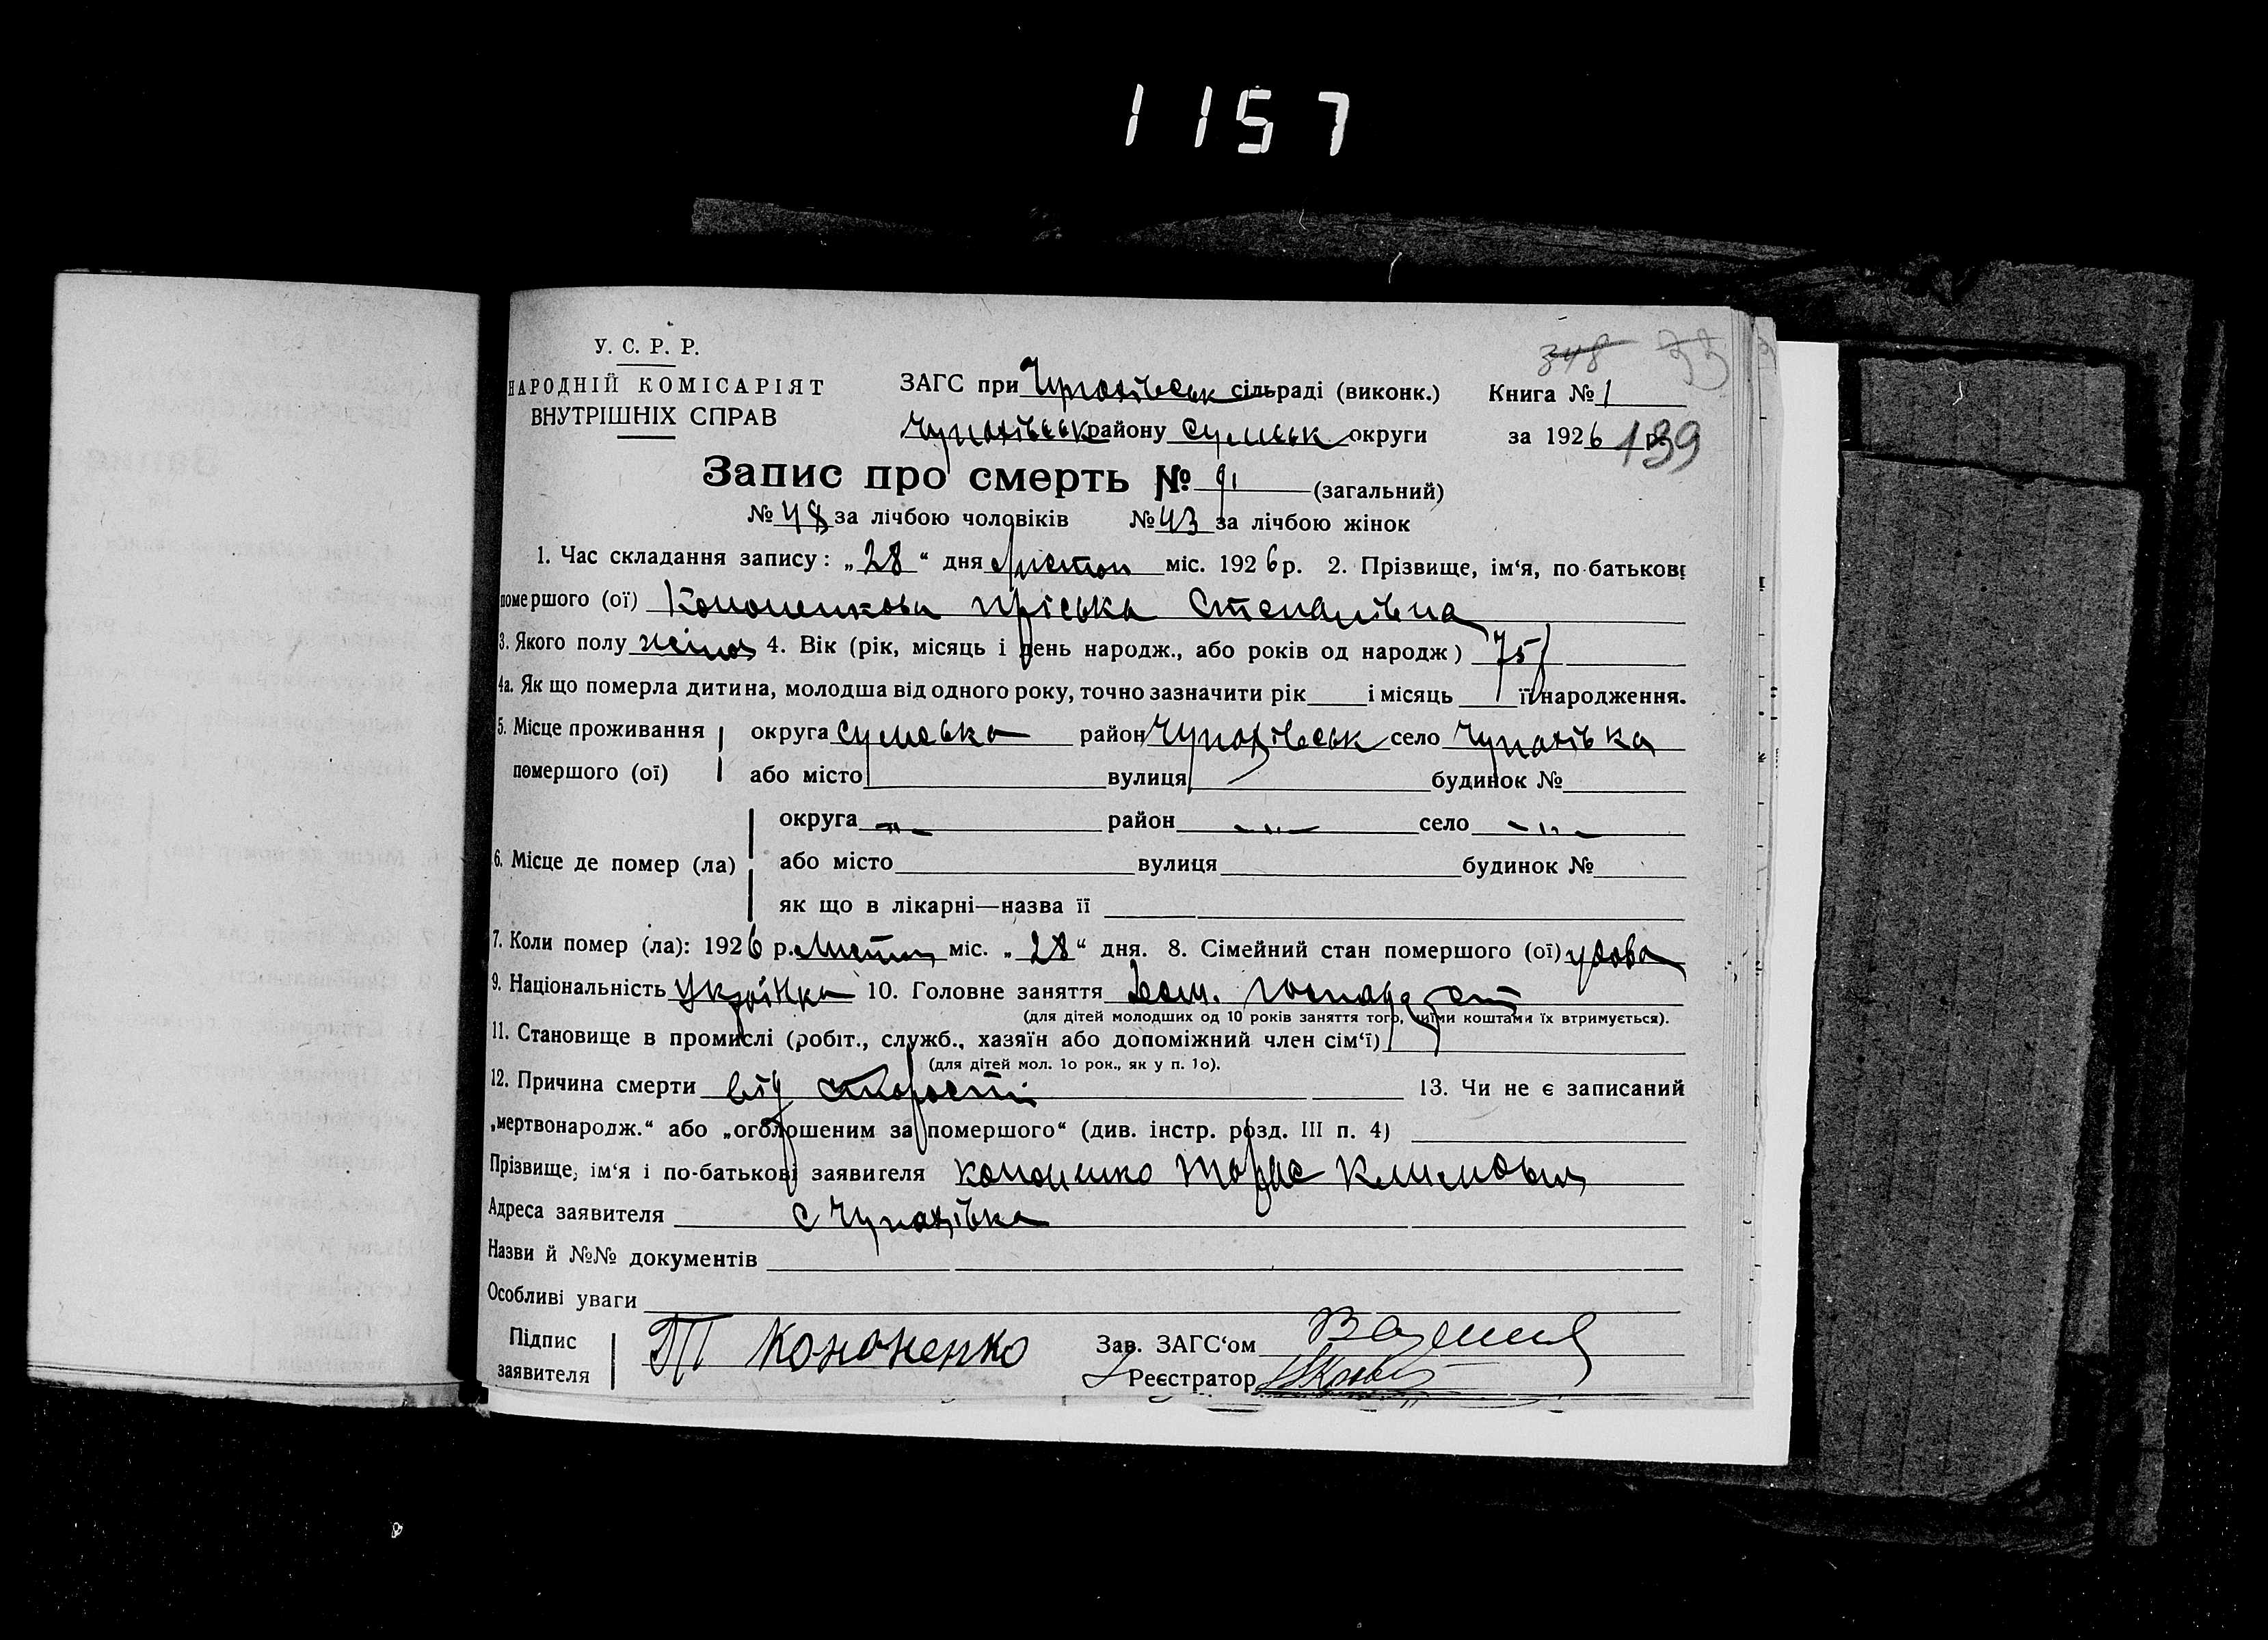 1157
У. С. Р. Р.
НАРОДНІЙ КОМІСАРІЯТ
ВНУТРІШНІХ СПРАВ
ЗАГС при Чупахівськ сільраді (виконк.)
Чупахівськ району Сумськ округи
348 33
Книга № 1
за 1926 р.
139
Запис про смерть № 91 (загальний)
№ 48 за лічбою чоловіків № 43 за лічбою жінок
1. Час складання запису: „28“ дня листоп міс. 1926 р. 2. Прізвище, ім‘я, по-батькові
помершого (ої) Кононенкова Пріська Степанівна
3. Якого полу жіноч 4. Вік (рік, місяць і день народж., або років од народж) 75
4а. Як що померла дитина, молодша від одного року, точно зазначити рік і місяць її народження.
5. Місце проживання помершого (ої) округа Сумська район Чупахівськ село Чупахівка
або місто вулиця будинок №
6. Місце де помер (ла) округа -„- район -„- село -„-
або місто вулиця будинок №
як що в лікарні—назва її
7. Коли помер (ла): 1926 р. листоп міс. „28“ дня. 8. Сімейний стан помершого (ої) удова
9. Національність Українка 10. Головне заняття
(для дітей молодших од 10 років заняття того, чиїми коштами їх втримується).
11. Становище в промислі (робіт., служб., хазяїн або допоміжний член сім‘ї)
(для дітей мол. 1о рок., як у п. 1о).
12. Причина смерти від старости 13. Чи не є записаний
„мертвонародж.“ або „оголошеним за помершого“ (див. інстр. розд. III п. 4)
Прізвище, ім‘я і по-батькові заявителя Кононенко Тарас Климович
Адреса заявителя с Чупахівка
Назви й №№ документів
Особливі уваги
Підпис заявителя Т Кононенко
Зав. ЗАГС‘ом
Реєстратор